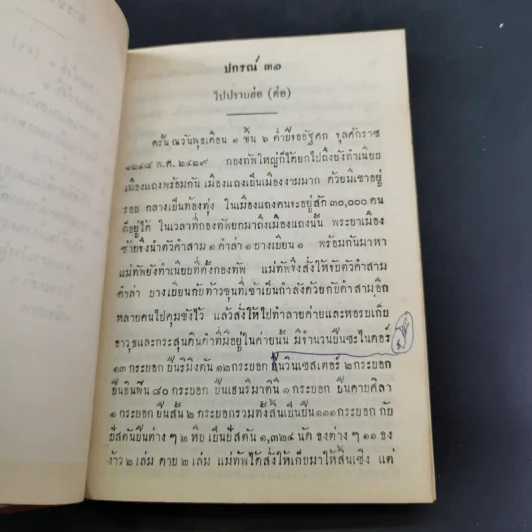 ปกรณ์ ๓๑
ไปปราบฮ่อ (ต่อ)
ครั้น ณ วันพุธเดือน ๑ ขึ้น ๖ ค่ำปีจออัฐศก จุลศักราช
๑๒๔๘ พ.ศ. ๒๔๒๙ กองทัพใหญ่ก็ได้ยกไปถึงยังทำเนียบ
เมืองแถงพร้อมกัน เมืองแถงเป็นเมืองงามมาก ด้วยมีเขาอยู่
รอบ กลางเป็นท้องทุ่ง ในเมืองแถงคนจะอยู่สัก ๓๐,๐๐๐ คน
ก็อยู่ได้ ในเวลาที่กองทัพยกมาถึงเมืองแถงนั้น พระยาเมือง
ซ้ายจึงนำตัวคำสาม ๑ คำล่า ๑ บางเบียน ๑ พร้อมกันมาหา
แม่ทัพยังทำเนียบที่ตั้งกองทัพ แม่ทัพจึงสั่งให้จับตัวคำสาม
คำล่า บางเบียนกับท้าวขุนที่เข้าเป็นกำลังด้วยกับคำสามอีก
หลายคนไปคุมขังไว้ แล้วสั่งให้ไปทำลายค่ายและหอรบเก็บ
อาวุธและกระสุนดินดำที่มีอยู่ในค่ายนั้น มีจำนวนปืนซะไนเดอร์
๑๓ กระบอก ปืนริมิงตัน ๑๒ กระบอก ปืนวินเชสเตอร์ ๒ กระบอก
ปืนอินฟีน ๔๐ กระบอก ปืนเฮนริมาตินี ๑ กระบอก ปืนคาบศิลา
๑ กระบอก ปืนสั้น ๒ กระบอกรวมทั้งสิ้นเป็นปืน ๑๑๑ กระบอก กับ
ปัสตันปืนต่าง ๆ ๒ หีบ เป็นปัสตัน ๑,๓๒๔ นัด ธงต่าง ๆ ๑๑ ธง
ง้าว ๒ เล่ม ดาบ ๒ เล่ม แม่ทัพได้สั่งให้เก็บมาให้สิ้นเชิง แต่